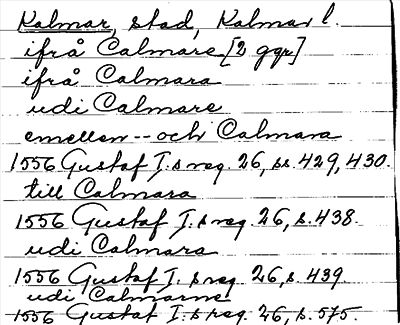 Kalmar, stad, Kalmar l.
ifrå Calmare [2 ggr]
ifrå Calmara
udi Calmare
emellen -- och Calmara
1556 Gustaf I:s reg. 26, ss. 429, 430.
till Calmara
1556 Gustaf I:s reg 26, s. 438.
udi Calmara
1556 Gustaf I:s reg 26, s. 439
udi Calmarne
1556 Gustaf I:s reg. 26, s. 575.